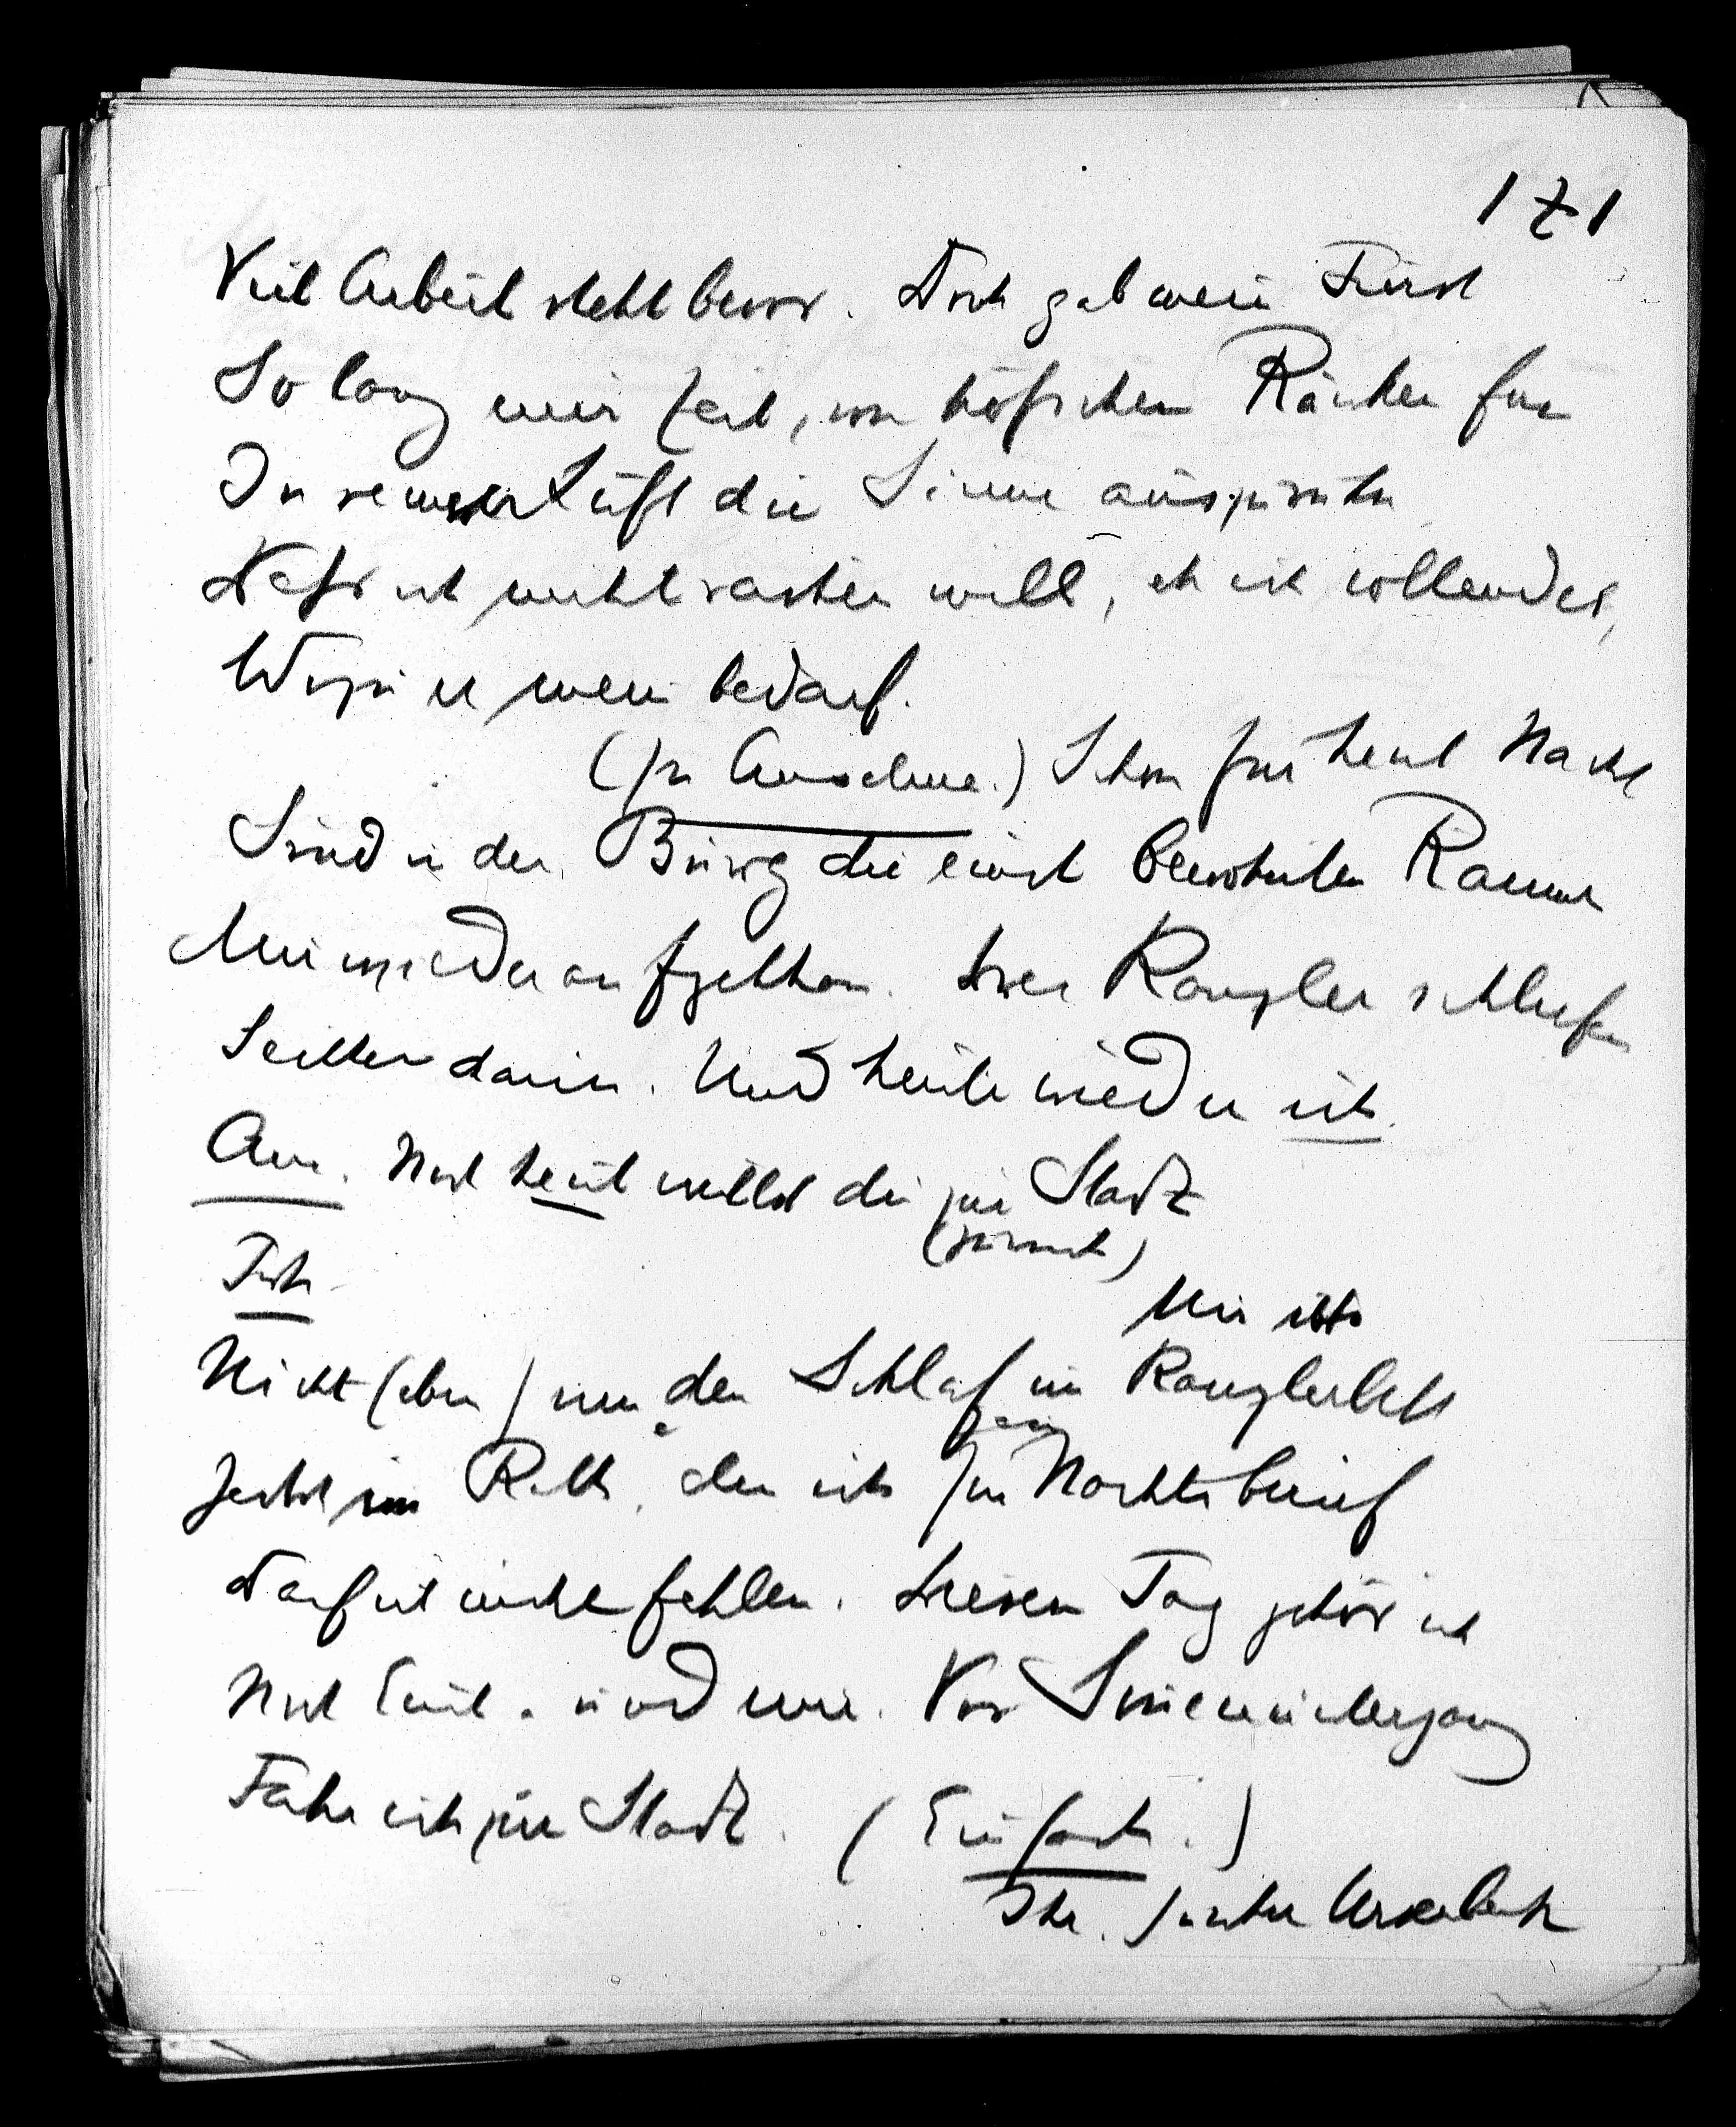 171
Viel Arbeit steht bevor. Doch gab mein Fürst
So lang mir Zeit, von höfschen Ränken fern
In reinerer Luft die Sinne auszuruhn
Daß ich nicht rasten will, eh ich vollendet,
Wozu er mein bedarf.
(zu Anselma.) Schon für heut Nacht
Sind in der Burg die einst bewohnten Räume
Mir wieder aufgethan. Drei Kanzler schliefen
Seither darin. Und heute wieder ich.
An. Noch heut willst du zur Stadt
(zurück)
Mir ists
Nicht (eben) um den Schlaf im Kanzlerbett
Jedoch im Rath, den ich zur Nacht berief
Darf ich nicht fehlen. Diesen Tag gehör ich
Noch Euch und mir. Vor Sonnenuntergang
Fahr ich zur Stadt. (Einfach.)
Ihr, Junker